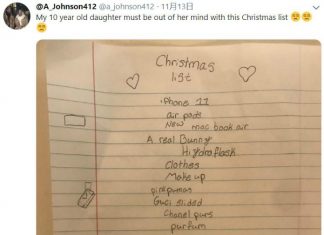 @A_Johnson412
@a_johnson412 · 11月13日
My 10 year old daughter must be out of her mind with this Christmas list
Christmas
list
iphone 11
air pods
New mac book air
A real Bunny
Hydro flask
Clothes
Makeup
pink pumas
Guci slided
Chanel purs
purfum